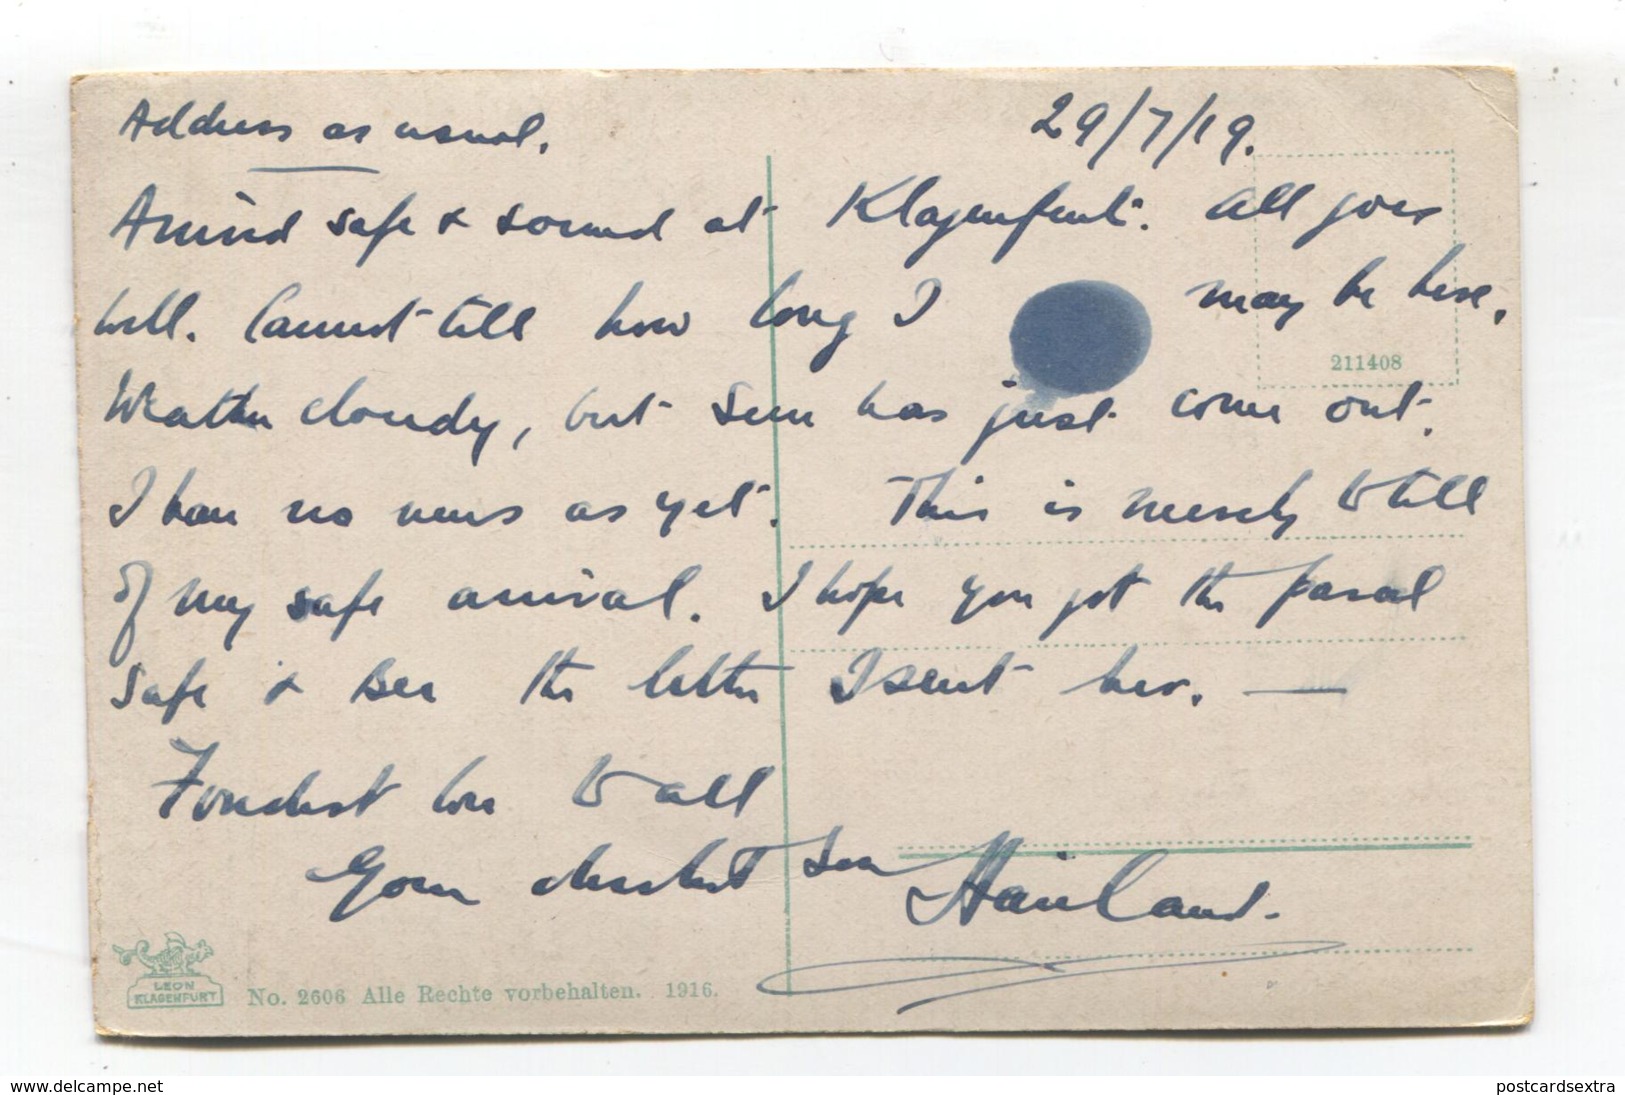 Address as usual.
29/7/19.
Arrived safe & sound at Klagenfurt. All goes
well. Cannot tell how long I may be here.
211408
Weather cloudy, but sun has just come out.
I have no news as yet. This is merely to tell
of my safe arrival. I hope you got the parcel
safe & Bea the letter I sent her. —
Fondest love to all
Your dearest son
LEON
KLAGENFURT
No. 2606 Alle Rechte vorbehalten. 1916.
www.delcampe.net
postcardsextra